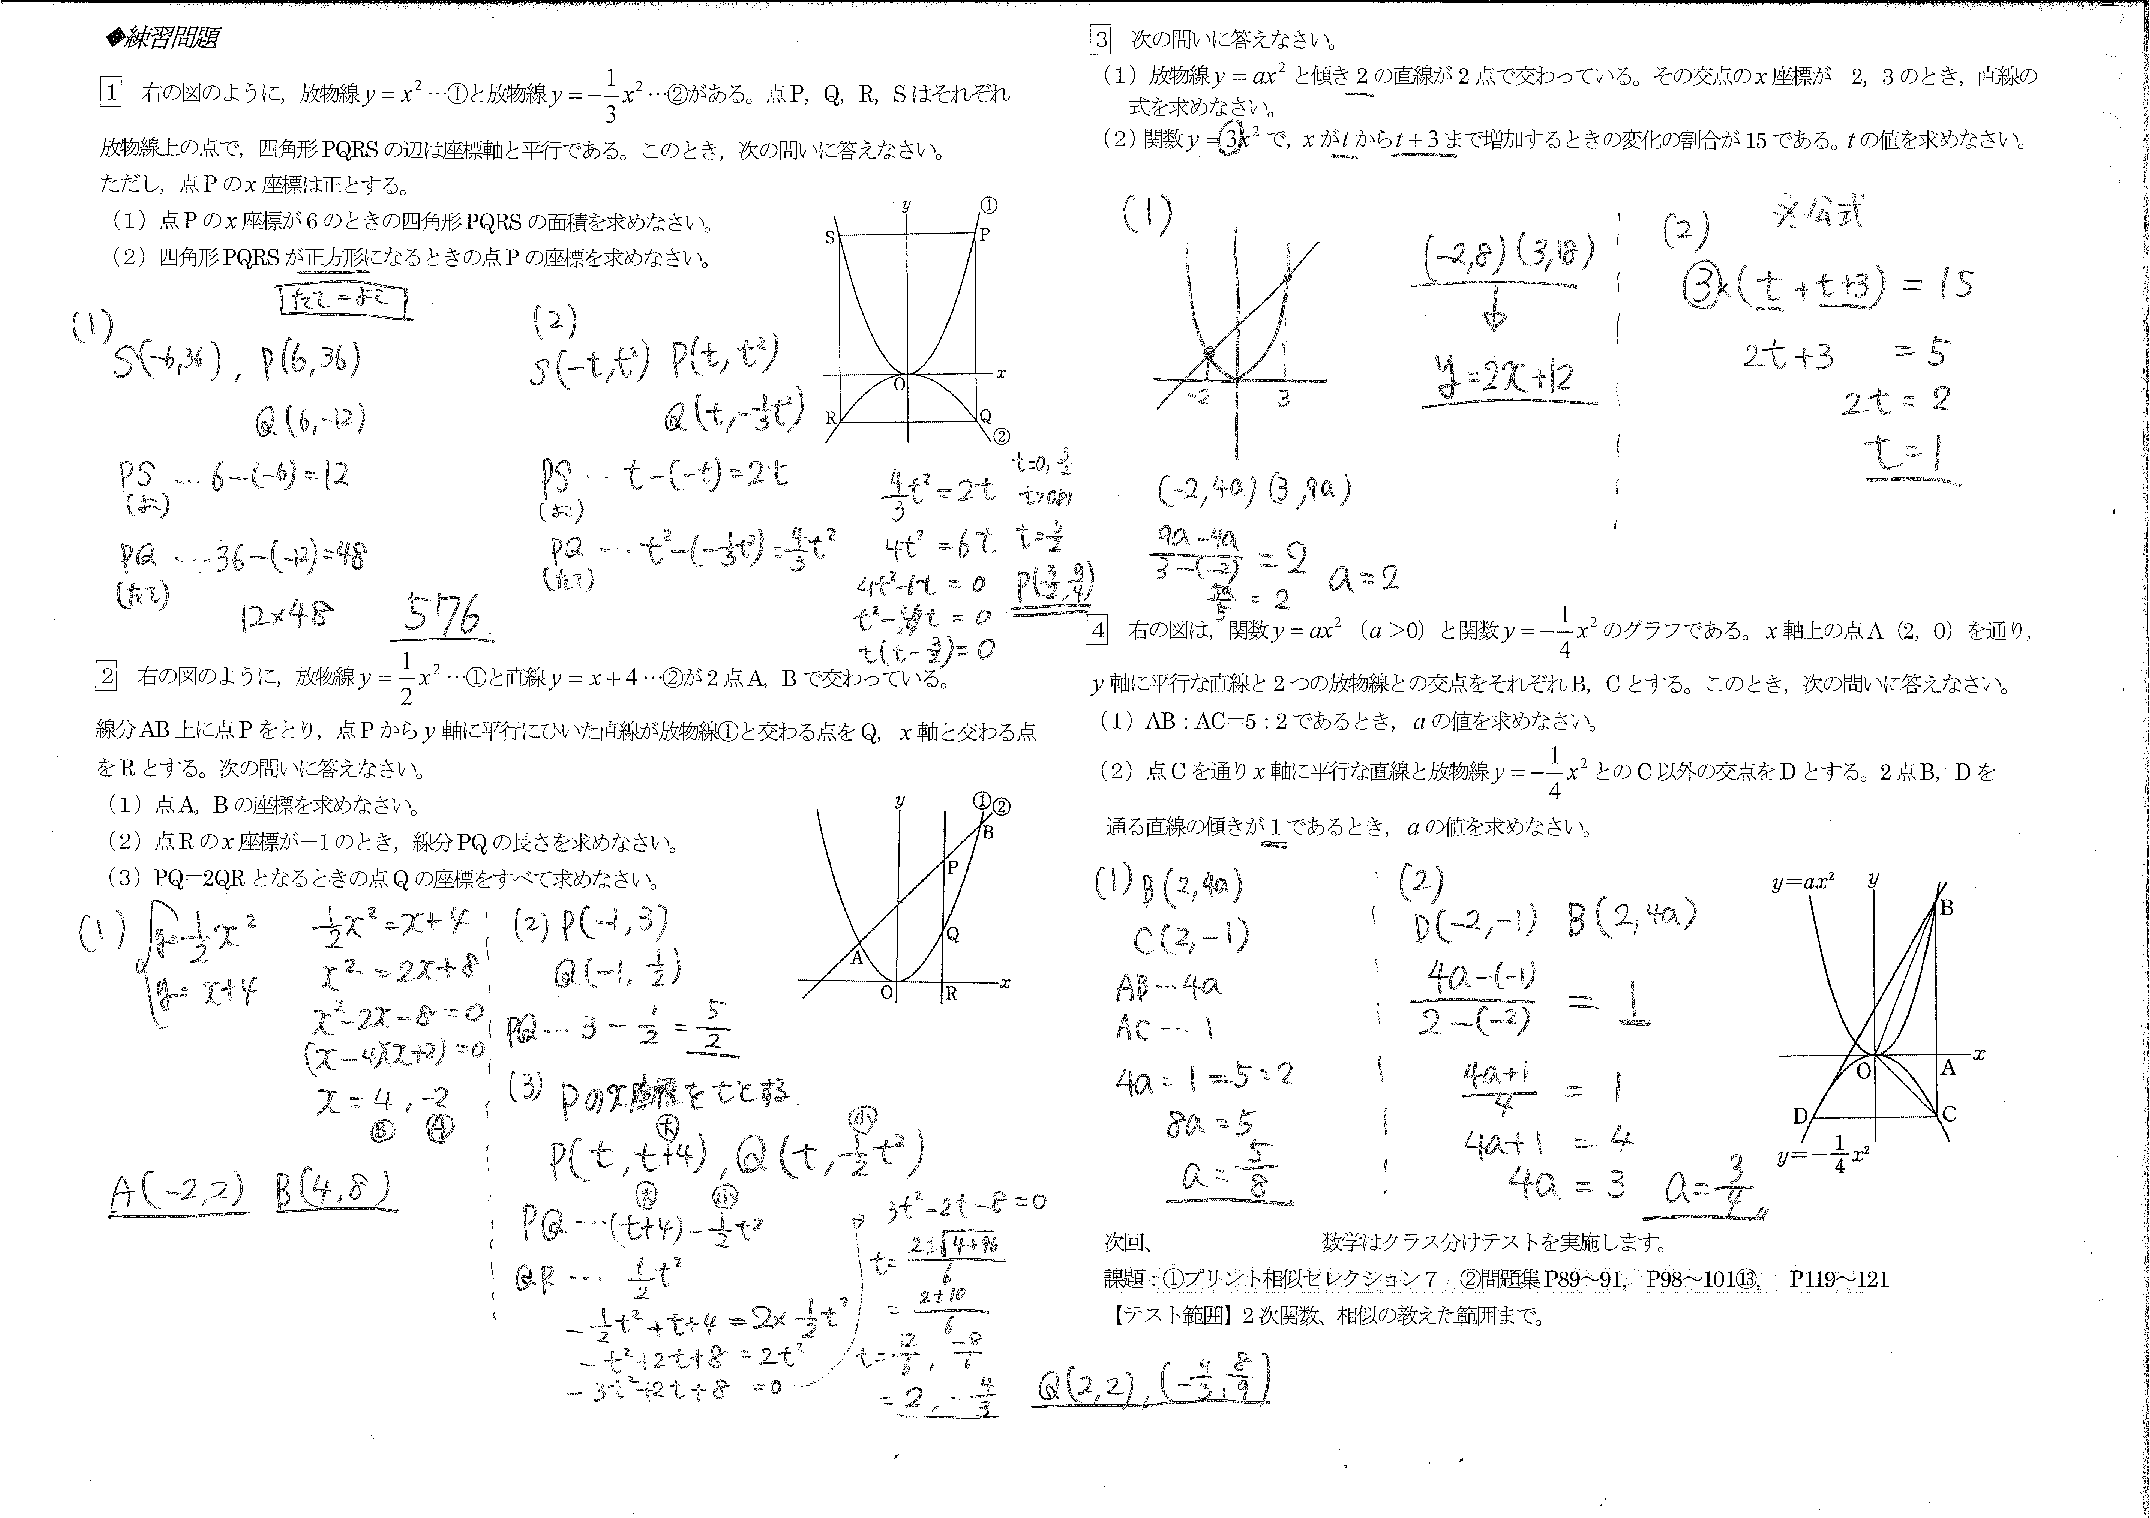 ◆練習問題
1 右の図のように，放物線 y = x² …①と放物線 y = −1/3 x² …②がある。点P，Q，R，Sはそれぞれ
放物線上の点で，四角形PQRSの辺は座標軸と平行である。このとき，次の問いに答えなさい。
ただし，点Pのx座標は正とする。
（1）点Pのx座標が6のときの四角形PQRSの面積を求めなさい。
（2）四角形PQRSが正方形になるときの点Pの座標を求めなさい。
たて＝よこ
y ①
S P
O x
R Q
②
(1)
S(-6,36), P(6,36)
Q(6,-12)
PS … 6-(-6)=12
(よこ)
PQ … 36-(-12)=48
(たて)
12×48 576
(2)
S(-t,t²) P(t,t²)
Q(t,-1/3t²)
PS … t-(-t)=2t
(よこ)
PQ … t²-(-1/3t²)=4/3t²
(たて)
4/3t²=2t
4t²=6t
4t²-6t=0
t(t-3/2)=0
t=0, 3/2
t=3/2
2 右の図のように，放物線 y = 1/2 x² …①と直線 y = x+4 …②が2点A，Bで交わっている。
線分AB上に点Pをとり，点Pからy軸に平行にひいた直線が放物線①と交わる点をQ，x軸と交わる点
をRとする。次の問いに答えなさい。
（1）点A，Bの座標を求めなさい。
（2）点Rのx座標が−1のとき，線分PQの長さを求めなさい。
（3）PQ=2QRとなるときの点Qの座標をすべて求めなさい。
y ①②
B
P
Q
A
O R x
(1) y=1/2x²
y=x+4
1/2x²=x+4
x²=2x+8
x²-2x-8=0
(x-4)(x+2)=0
x=4,-2
Ⓑ Ⓐ
A(-2,2) B(4,8)
(2) P(-1,3)
Q(-1,1/2)
PQ … 3-1/2=5/2
(3) Pのx座標をtとする
大 小
P(t,t+4), Q(t,1/2t²)
大 小
PQ … (t+4)-1/2t²
QR … 1/2t²
-1/2t²+t+4=2×1/2t²
-t²+2t+8=2t²
-3t²+2t+8=0
3t²-2t-8=0
t=2±√4+96/6
=2±10/6
t=12/6, -8/6
=2, -4/3
Q(2,2), (-4/3,8/9)
3 次の問いに答えなさい。
（1）放物線 y = ax² と傾き2の直線が2点で交わっている。その交点のx座標が 2，3のとき，直線の
式を求めなさい。
（2）関数 y = 3x² で，xがtからt+3まで増加するときの変化の割合が15である。tの値を求めなさい。
(1)
-2 3
(-2,8)(3,18)
↓
y=2x+12
(-2,4a)(3,9a)
9a-4a/3-(-2)=2
5a/5=2 a=2
(2) ※公式
3×(t+t+3)=15
2t+3=5
2t=2
t=1
4 右の図は，関数 y = ax²（a>0）と関数 y = −1/4 x² のグラフである。x軸上の点A（2，0）を通り，
y軸に平行な直線と2つの放物線との交点をそれぞれB，Cとする。このとき，次の問いに答えなさい。
（1）AB：AC=5：2であるとき，aの値を求めなさい。
（2）点Cを通りx軸に平行な直線と放物線 y = −1/4 x² とのC以外の交点をDとする。2点B，Dを
通る直線の傾きが1であるとき，aの値を求めなさい。
(1) B(2,4a)
C(2,-1)
AB … 4a
AC … 1
4a:1=5:2
8a=5
a=5/8
(2)
D(-2,-1) B(2,4a)
4a-(-1)/2-(-2)=1
4a+1/4=1
4a+1=4
4a=3 a=3/4
y=ax² y
B
O A x
D C
y=−1/4x²
次回、 数学はクラス分けテストを実施します。
課題：①プリント相似セレクション7 ②問題集P89～91， P98～101⑬， P119～121
【テスト範囲】2次関数、相似の教えた範囲まで。